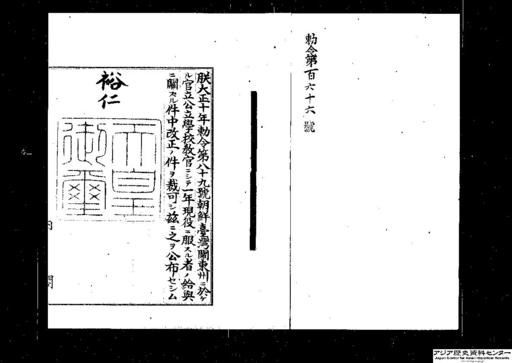 勅令第百六十六號
朕大正十年勅令第八十九號朝鮮臺灣關東州ニ於ケ
ル官立公立學校教官ニシテ一年現役ニ服スル者ノ給與
ニ關スル件中改正ノ件ヲ裁可シ茲ニ之ヲ公布セシム
裕仁
天皇御璽
内閣
アジア歴史資料センター
Japan Center for Asian Historical Records